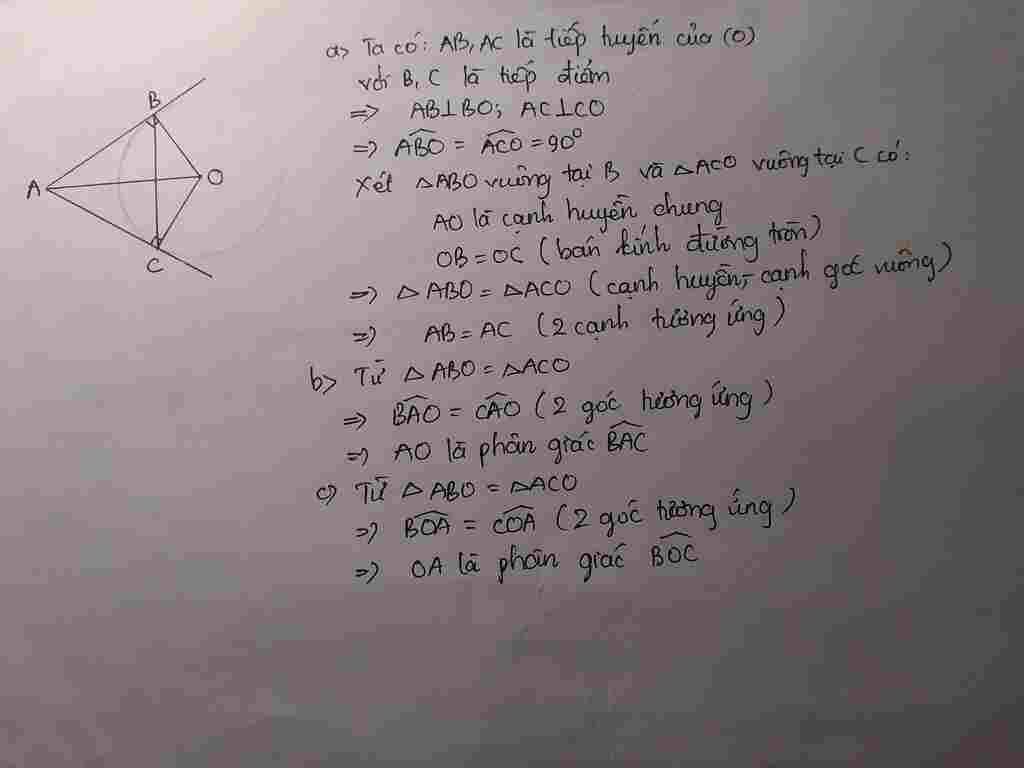 a> Ta có: AB, AC là tiếp tuyến của (O)
với B, C là tiếp điểm
=> AB⊥BO; AC⊥CO
=> \widehat{ABO} = \widehat{ACO} = 90⁰
Xét △ABO vuông tại B và △ACO vuông tại C có:
AO là cạnh huyền chung
OB = OC (bán kính đường tròn)
=> △ABO = △ACO (cạnh huyền - cạnh góc vuông)
=> AB = AC (2 cạnh tương ứng)
b> Từ △ABO = △ACO
=> \widehat{BAO} = \widehat{CAO} (2 góc tương ứng)
=> AO là phân giác \widehat{BAC}
c) Từ △ABO = △ACO
=> \widehat{BOA} = \widehat{COA} (2 góc tương ứng)
=> OA là phân giác \widehat{BOC}
B
A
O
C